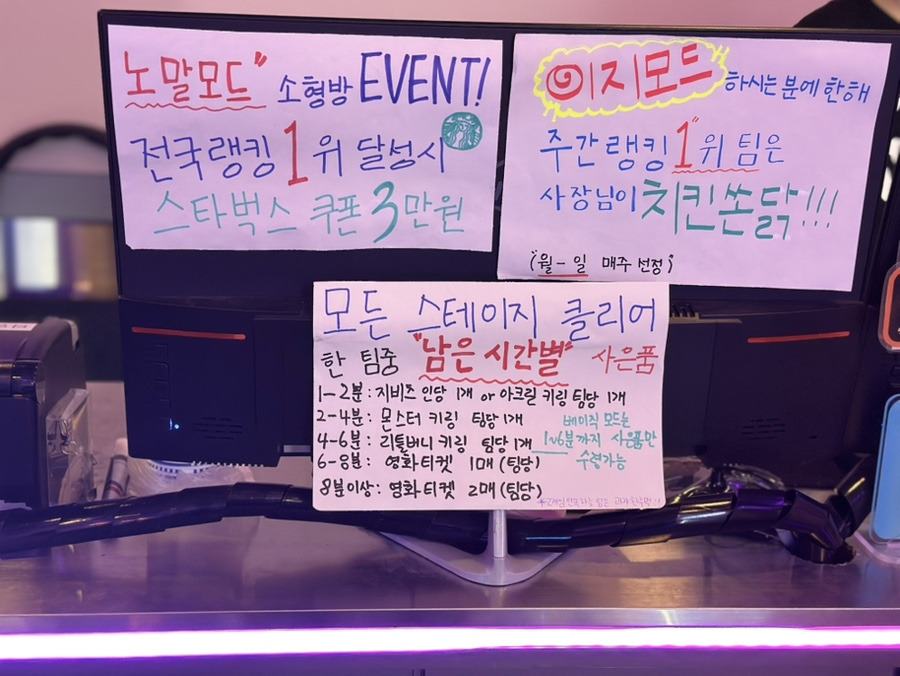 노말모드" 소형방 EVENT!
전국랭킹 1위 달성시
스타벅스 쿠폰 3만원
이지모드 하시는 분에 한해
주간랭킹 1"위 팀은
사장님이 치킨쏜닭!!!
(월-일 매주 선정)
모든 스테이지 클리어
한 팀중 "남은 시간별" 사은품
1-2분: 지비츠 인당 1개 or 아크릴 키링 팀당 1개
2-4분: 몬스터 키링 팀당 1개
4-6분: 리틀버니 키링 팀당 1개
6-8분: 영화티켓 1매 (팀당)
8분이상: 영화티켓 2매 (팀당)
베이직 모드는
1~6분까지 사은품만
수령가능